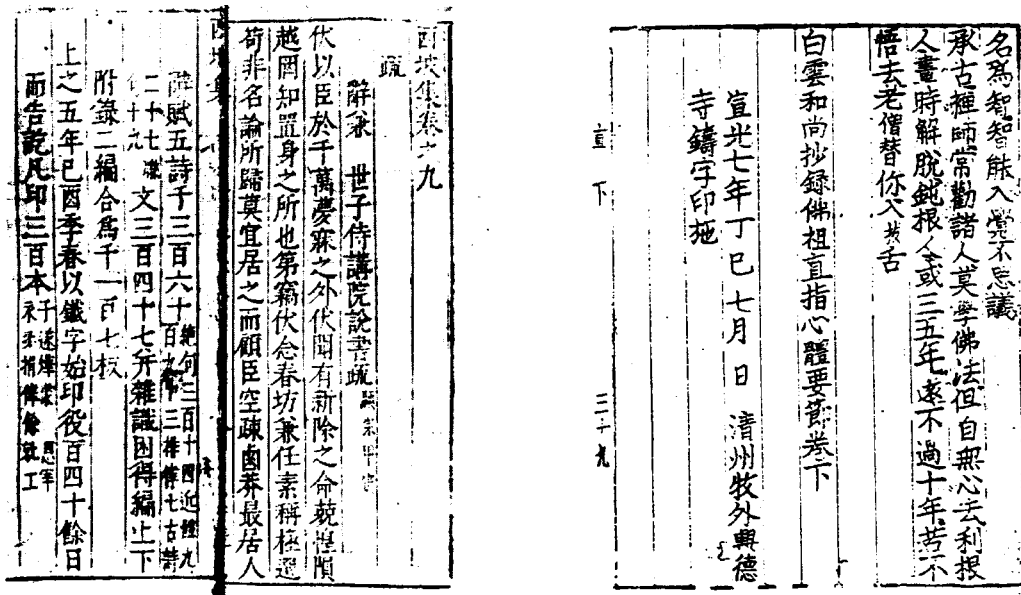 名爲智智能入覺不思議
承古禪師常勸諸人莫學佛法但自無心去利根
人晝時解脫鈍根人或三五年遠不過十年若不
悟去老僧替你入拔舌
白雲和尚抄錄佛祖直指心體要節卷下
宣光七年丁巳七月 日 淸州牧外興德
寺鑄字印施
直 下 三十九
西坡集卷之九
疏
辭兼 世子侍講院說書疏
伏以臣於千萬夢寐之外伏聞有新除之命兢惶隕
越罔知置身之所也第竊伏念春坊兼任素稱極選
苟非名論所歸莫宜居之而顧臣空疎鹵莽最居人
西坡集
辭賦五詩千三百六十
文三百四十七幷雜識因得編上下
附錄二編合爲千一百七板
上之五年己酉季春以鐵字始印役百四十餘日
而告訖凡印三百本